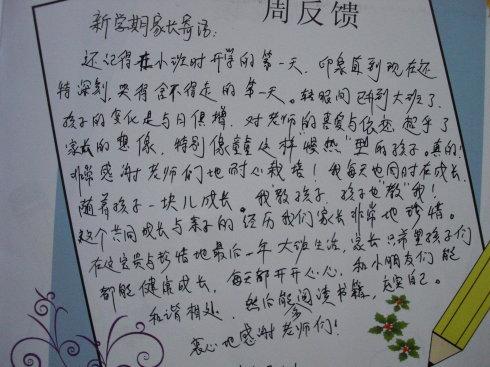 周反馈
新学期家长寄语：
还记得在小班时开学的第一天，印象直到现在还
特深刻，哭得舍不得走的第一天。转眼间已升到大班了，
孩子的变化是与日俱增，对老师的喜爱与依恋超乎了
家长的想像，特别像童童这样"慢热"型的孩子。真的！
非常感谢老师们地耐心栽培！我每天也同时在成长，
随着孩子一块儿成长。我"教"孩子，孩子也"教"我！
这个共同成长与亲子的经历我们家长非常地珍惜。
在这宝贵与珍惜地最后一年大班生活，家长只希望孩子们
都能健康成长，每天都开开心心，和小朋友们能
和谐相处，然后能多阅读书籍，充实自己。
衷心地感谢老师们！